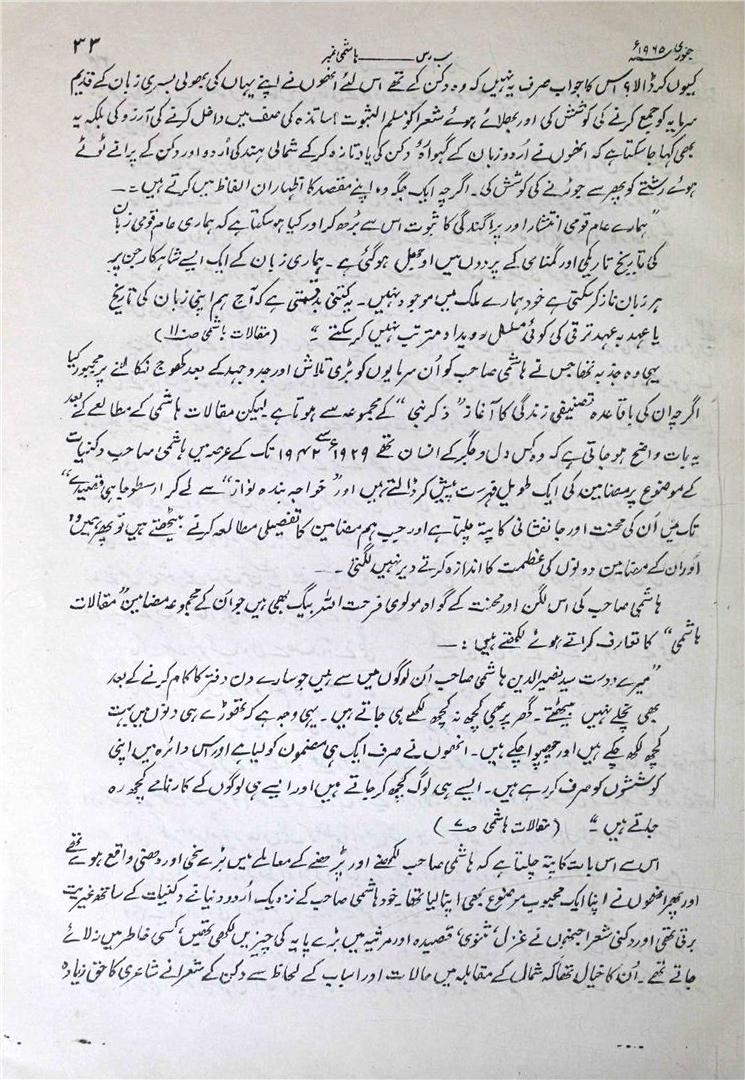 جنوری ۱۹۶۵ء سب رس ــــــ ہاشمی نمبر ۳۳
کیوں کر ڈالا؟ اس کا جواب صرف یہ نہیں کہ وہ دکن کے تھے اس لئے انھوں نے اپنے یہاں کی بھولی بسری زبان کے قدیم
سرمایہ کو جمع کرنے کی کوشش کی اور بھلائے ہوئے شعرا کو مسلم الثبوت اساتذہ کی صف میں داخل کرنے کی آرزو کی بلکہ یہ
بھی کہا جا سکتا ہے کہ انھوں نے اُردو زبان کے گہوارۂ دکن کی یاد تازہ کر کے شمالی ہند کی اُردو اور دکن کے پرانے ٹوٹے
ہوئے رشتے کو پھر سے جوڑنے کی کوشش کی۔ اگرچہ ایک جگہ وہ اپنے مقصد کا اظہار ان الفاظ میں کرتے ہیں :۔
"ہمارے عام قومی انتشار اور پراگندگی کا ثبوت اس سے بڑھ کر اور کیا ہو سکتا ہے کہ ہماری عام قومی زبان
کی تاریخ تاریکی اور گمنامی کے پردوں میں اوجھل ہو گئی ہے۔ ہماری زبان کے ایک ایسے شاہکار جن پر
ہر زبان ناز کر سکتی ہے خود ہمارے ملک میں موجود نہیں۔ یہ کتنی بدقسمتی ہے کہ آج ہم اپنی زبان کی تاریخ
یا عہد بہ عہد ترقی کی کوئی مسلسل روداد مرتب نہیں کر سکتے۔" (مقالات ہاشمی صفحہ ۱۱)
یہی وہ جذبہ تھا جس نے ہاشمی صاحب کو اُن سرمایوں کو بڑی تلاش اور جدوجہد کے بعد کھوج نکالنے پر مجبور کیا
اگرچہ ان کی باقاعدہ تصنیفی زندگی کا آغاز "ذکر نبی" کے مجموعہ سے ہوتا ہے لیکن مقالات ہاشمی کے مطالعے کے بعد
یہ بات واضح ہو جاتی ہے کہ وہ کس دل و جگر کے انسان تھے ۱۹۲۹ء سے ۱۹۴۲ تک کے عرصہ میں ہاشمی صاحب دکنیات
کے موضوع پر مضامین کی ایک طویل فہرست پیش کر ڈالتے ہیں اور "خواجہ بندہ نواز" سے لے کر "ارسطو جاہی قصیدے"
تک میں اُن کی محنت اور جانفشانی کا پتہ چلتا ہے اور جب ہم مضامین کا تفصیلی مطالعہ کرنے بیٹھتے ہیں تو پھر ہمیں وہ
اور ان کے مضامین دونوں کی عظمت کا اندازہ کرتے دیر نہیں لگتی۔
ہاشمی صاحب کی اس لگن اور محنت کے گواہ مولوی فرحت اللہ بیگ بھی ہیں جو ان کے مجموعہ مضامین "مقالات
ہاشمی" کا تعارف کراتے ہوئے لکھتے ہیں :۔
"میرے دوست سید نصیر الدین ہاشمی صاحب اُن لوگوں میں سے ہیں جو سارے دن دفتر کا کام کرنے کے بعد
بھی نچلے نہیں بیٹھتے۔ گھر پر بھی کچھ نہ کچھ لکھے ہی جاتے ہیں۔ یہی وجہ ہے کہ تھوڑے ہی دنوں میں بہت
کچھ لکھ چکے ہیں اور چھپوا چکے ہیں۔ انھوں نے صرف ایک ہی مضمون کو لیا ہے اور اس دائرہ میں اپنی
کوششوں کو صرف کر رہے ہیں۔ ایسے ہی لوگ کچھ کر جاتے ہیں اور ایسے ہی لوگوں کے کارنامے کچھ رہ
جاتے ہیں۔" (مقالات ہاشمی صفحہ ۷)
اس سے اس بات کا پتہ چلتا ہے کہ ہاشمی صاحب لکھنے اور پڑھنے کے معاملے میں بڑے سخی اور دھنی واقع ہوئے تھے
اور پھر انھوں نے اپنا ایک محبوب موضوع بھی اپنا لیا تھا۔ خود ہاشمی صاحب کے نزدیک اُردو دنیا نے دکنیات کے ساتھ غیریت
برتی تھی اور دکنی شعرا جنھوں نے غزل، مثنوی، قصیدہ اور مرثیہ میں بڑے پایہ کی چیزیں لکھی تھیں، کسی خاطر میں نہ لائے
جاتے تھے۔ اُن کا خیال تھا کہ شمال کے مقابلہ میں حالات اور اسباب کے لحاظ سے دکن کے شعرا نے شاعری کا حق زیادہ